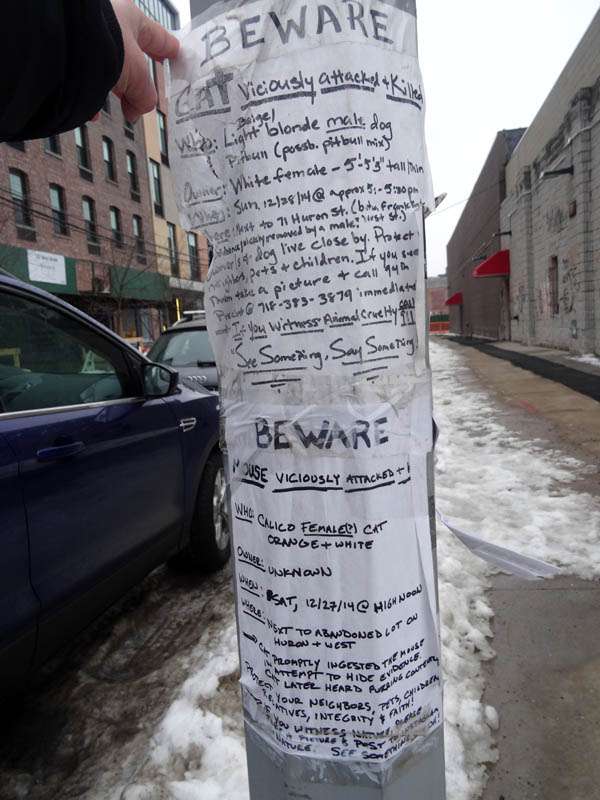 BEWARE
CAT Viciously attacked + Killed
Beige/
Who: Light blonde male dog
Pitbull (possb. pitbull mix)
Owner: White female - 5'-5'5" tall/thin
When: Sun, 12/28/14 @ approx 5:-5:30pm
Next to 71 Huron St. (btw. Franklin
removed by a male. West St.)
& dog live close by. Protect
neighbors, pets + children. If you see
them take a picture + call 94th
Precinct @ 718-383-3879 immediat
If You Witness Animal Cruelty CALL
311
"See Something, Say Something
BEWARE
MOUSE VICIOUSLY ATTACKED +
WHO: CALICO FEMALE(?) CAT
ORANGE + WHITE
OWNER: UNKNOWN
WHEN: SAT, 12/27/14 @ HIGH NOON
WHERE: NEXT TO ABANDONED LOT ON
HURON + WEST
→ CAT PROMPTLY INGESTED THE MOUSE
ATTEMPT TO HIDE EVIDENCE.
CAT LATER HEARD PURRING CONTENTLY
PROTECT YOUR NEIGHBORS, PETS, CHILDREN,
RELATIVES, INTEGRITY & FAITH!
IF YOU WITNESS NATURE, PLEASE
PICTURE & POST TO INSTAGRAM
NATURE. SEE SOMETHING